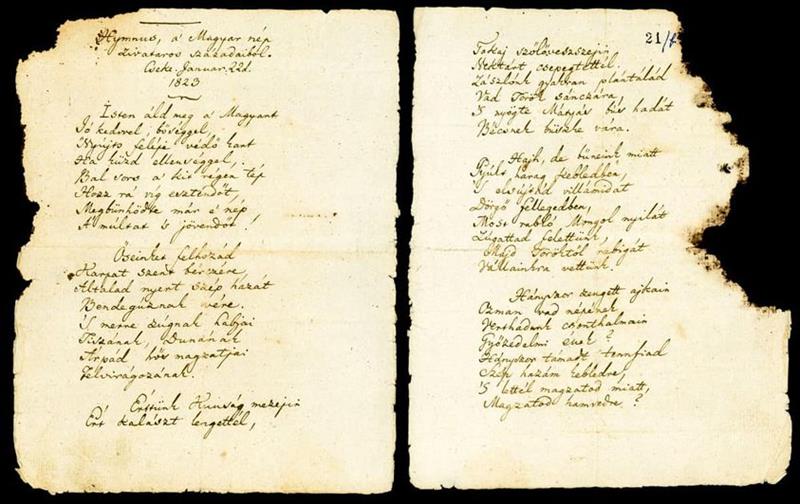 Hymnus, a' Magyar nép
zivataros századaiból.
Cseke Januar. 22d.
1823
Isten áldd meg a Magyart
Jó kedvvel, bőséggel,
Nyújts feléje védő kart
Ha küzd ellenséggel,
Bal sors a kit régen tép
Hozz rá víg esztendőt,
Megbűnhődte már e' nép
A múltat 's jövendőt!
Őseinket felhozád
Kárpát szent bérczére,
Általad nyert szép hazát
Bendegúznak vére.
'S merre zúgnak habjai
Tiszának, Dunának
Árpád hős magzatjai
Felvirágozának.
Értünk Kunság mezejin
Ért kalászt lengettél,
21/f
Tokaj szőlővesszejin
Nektárt csepegtettél.
Zászlónk gyakran plántálád
Vad Török sánczára,
'S nyögte Mátyás bús hadát
Bécsnek büszke vára.
Hajh, de bűneink miatt
Gyúlt harag kebledben,
'S elsújtád villámidat
Dörgő fellegedben,
Most rabló Mongol nyilát
Zúgattad felettünk,
Majd Töröktől rabigát
Vállainkra vettünk.
Hányszor zengett ajkain
Ozman vad népének
Vert hadunk csonthalmain
Győzedelmi ének?
Hányszor támadt tennfiad
Szép hazám kebledre,
'S lettél magzatod miatt,
Magzatod hamvvedre?